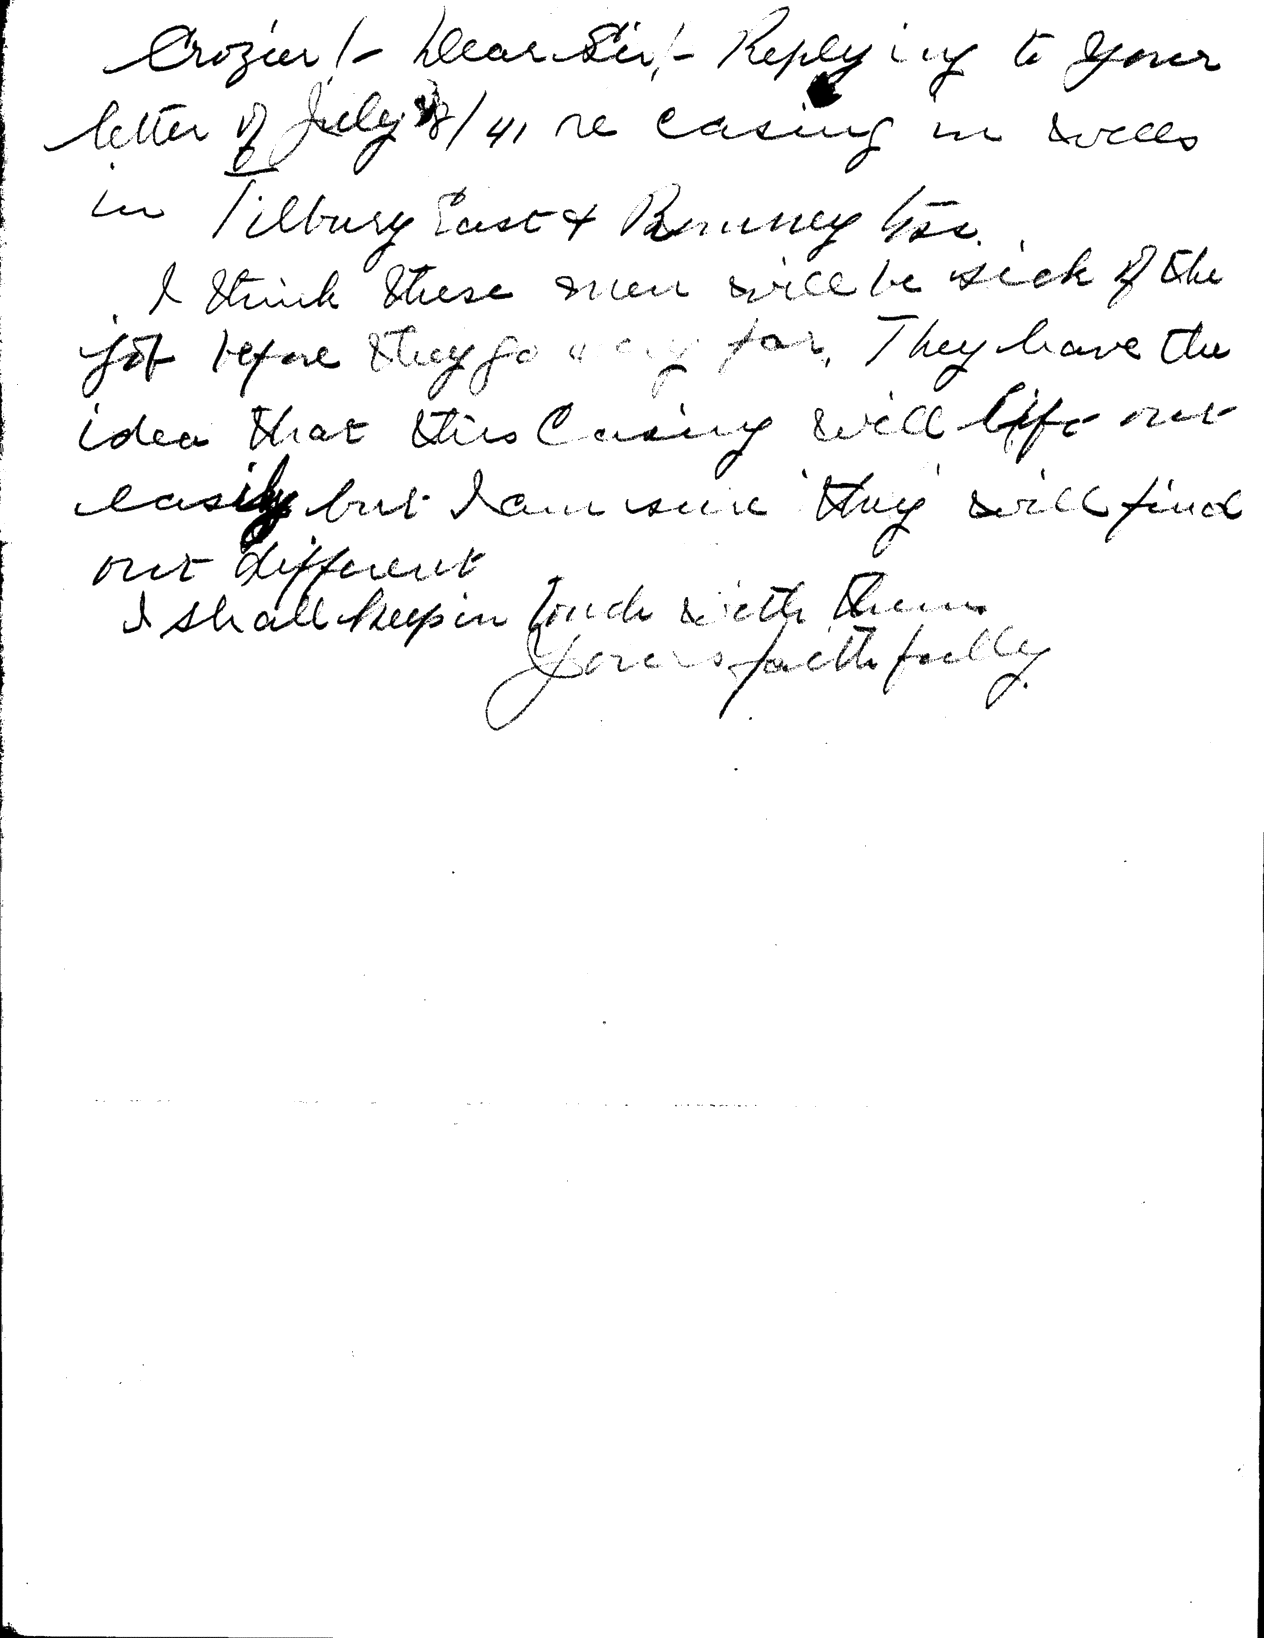 Crozier!- Dear Sir,- Replying to your
letter of July 8/41 re casing in wells
in Tilbury East & Romney
I think these men will be sick of the
job before they go very far. They have the
idea that this Casing will lift out
easily but I am sure they will find
out different
I shall keep in touch with them.
Yours faithfully